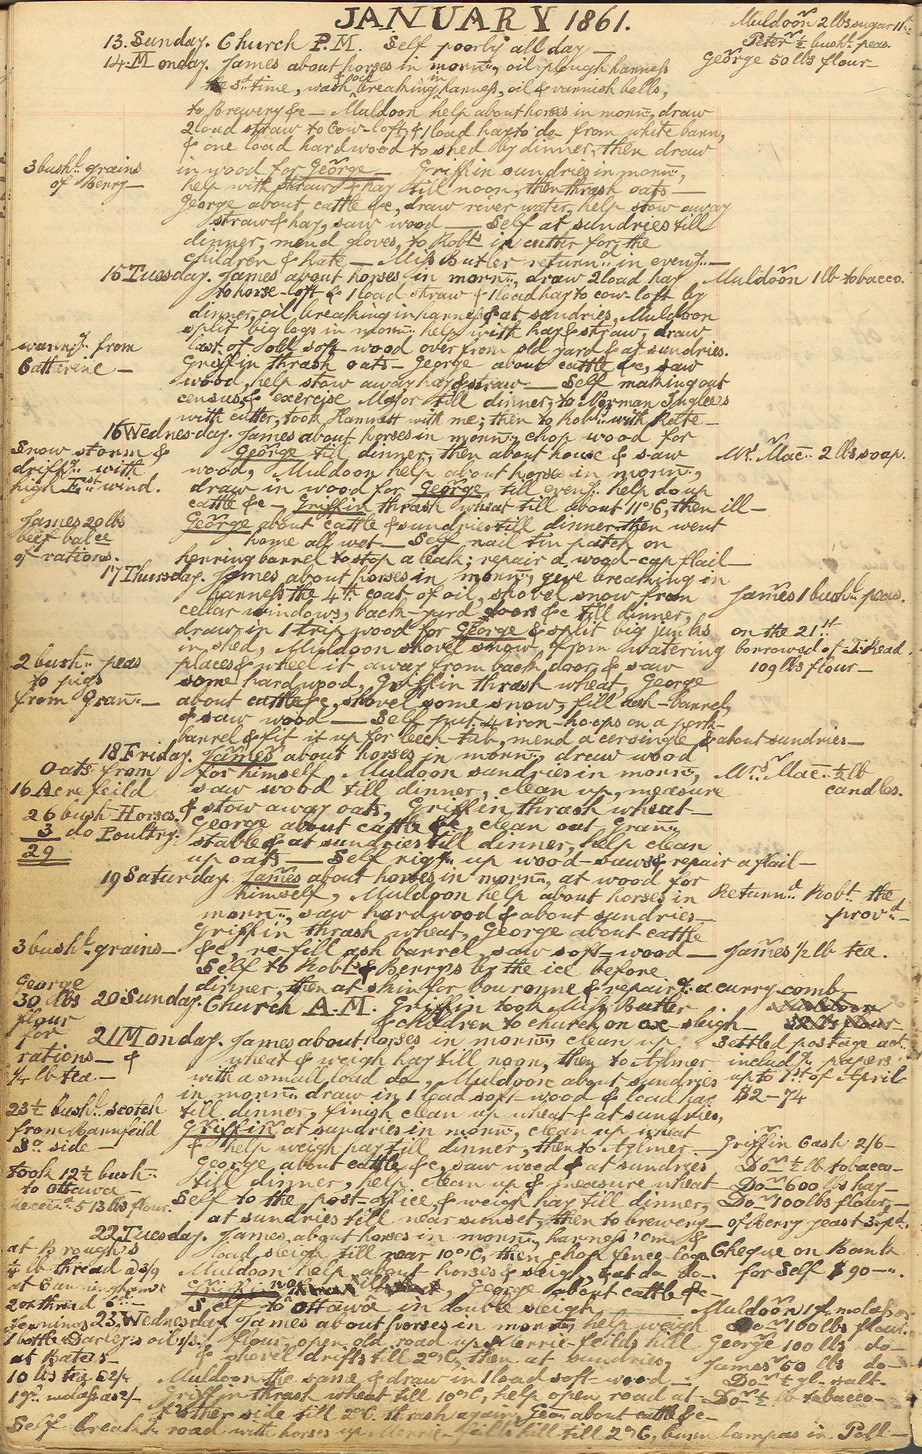 JANUARY 1861.
Muldoon 2 lbs sugar
Peter ½ bushl. peas.
George 50 lbs flour
13. Sunday. Church P.M. Self poorly all day —
14. Monday. James about horses in mornn., oil plough harness
the 3rd time, wash & oil breaking in harness, oil & varnish bells,
to Brewery &c — Muldoon help about horses in mornn., draw
2 load straw to Cow-loft, & 1 load hay to do from white barn,
& one load hardwood to shed by dinner, then draw
3 bushl. grains
of Berry —
in wood for George — Griffin sundries in mornn.,
help with straw & hay till noon, then thrash oats —
George about cattle &c, draw river water, help stow away
straw & hay, saw wood — Self at sundries till
dinner, mend gloves, to Robts. in cutter for the
children & Kate — Miss Butler returnd. in eveng. —
15 Tuesday. James about horses in mornn., draw 2 load hay
Muldoon 1 lb tobacco.
to horse-loft & 1 load straw & 1 load hay to cow-loft by
dinner, oil breaking in harness & at sundries, Muldoon
split big logs in mornn. help with hay & straw, draw
last of old soft wood over from old yard & at sundries.
from
Catherine —
Griffin thrash oats — George about cattle &c, saw
wood, help stow away hay & straw — Self making out
census & exercise Major till dinner, to Norman Ingless
with cutter, took Hannett with me; then to Robts. with Kate —
16 Wednesday. James about horses in mornn., chop wood for
Snow storm &
drifts. with
high Est. wind.
George till dinner, then about house & saw
Mrs. Mac. 2 lbs soap.
wood, Muldoon help about horses in mornn.,
draw in wood for George, till eveng. help do up
cattle &c — Griffin thrash wheat till about 11 o'C, then ill —
James 20 lbs
beef balce
of rations.
George about cattle & sundries till dinner then went
home all wet — Self nail tin patch on
herring barrel to stop a leak; repair a wood-cap flail —
17 Thursday. James about horses in mornn., give breaking in
harness the 4th coat of oil, shovel snow from
James 1 bushl. peas.
cellar windows, back-yard doors &c till dinner,
draw in 1 trip wood for George & split big junks
on the 21st
borrowed of T. Head
109 lbs flour —
in shed, Muldoon shovel snow, from watering
2 bush. peas
to pigs
from Gran. —
places & wheel it away from back door & saw
some hardwood, Griffin thrash wheat, George
about cattle &c, shovel some snow, fill ash-barrel,
& saw wood — Self put 4 iron-hoops on a pork-
barrel & fit it up for leech-tub, mend a cersingle & about sundries —
18 Friday. James about horses in mornn., draw wood
Oats from
16 Acre feild
26 bush Horses.
3 do Poultry
29
for himself, Muldoon sundries in mornn.,
Mrs. Mac. ½ lb
candles.
saw wood till dinner, clean up, measure
& stow away oats, Griffin thrash wheat —
George about cattle &c, clean out Gran.,
stable & at sundries till dinner, help clean
up oats — Self rigg. up wood-saws & repair a flail —
19 Saturday. James about horses in mornn., at wood for
himself, Muldoon help about horses in
Returnd. Robt. the
provd. —
mornn., saw hardwood & about sundries —
Griffin thrash wheat, George about cattle
3 bushl. grains —
&c, re-fill ash barrel, saw soft-wood —
James ½ lb tea.
Self to Robts. & Berry's by the ice before
dinner, then at skin for bouronne & repairg. a curry comb —
George
30 lbs
flour
for
rations — &
¼ lb tea. —
20 Sunday. Church A.M. Griffin took Miss Butler
& children to church on ox sleigh —
21 Monday. James about horses in mornn., clean up
Settled postage act.
includg. papers
up to 1st of April
$2-74
wheat & weigh hay till noon, then to Aylmer
with a small load do, Muldoon about sundries
in mornn. draw in 1 load soft-wood & load hay
23½ bushl. scotch
from Barnfeild
So side —
till dinner, finish clean up wheat & at sundries,
Griffin at sundries in mornn., clean up wheat
& help weigh hay till dinner, then to Aylmer —
Griffin Cash 2/6 —
Took 12½ bush.
to Ottawa —
Receivd. 513 lbs flour.
George about cattle &c, saw wood & at sundries
Do ½ lb tobacco —
till dinner, help clean up & measure wheat —
Do 600 lbs hay
Self to the post-office & weigh hay till dinner,
Do 100 lbs flour, —
at sundries till near sunset, then to brewery —
of Berry yeast
22 Tuesday. James about horses in mornn., harness 'em &
at Brough's
¼ lb thread
at Cunninghams
load sleigh till near 10 o'C, then chop fence logs
Cheque on Bank
for Self $90 —
Muldoon help about horses & sleigh, & at do do —
Griffin George about cattle &c —
Self to Ottawa in double sleigh,
Muldoon 1 gl. molasses
23. Wednesday James about horses in mornn., help weigh
Do 100 lbs flour.
flour, open old road up Merrie-feilds till
George 100 lbs do —
& shovel drifts till 2 o'C, then at sundries,
James 50 lbs do —
at Bates —
10 lbs tea
1 gl. molasses
Muldoon the same & draw in 1 load soft-wood —
Do
Griffin thrash wheat till 10 o'C, help open road at
Do ½ lb tobacco —
further side till 2 o'C. thrash again, Geo. about cattle &c —
Self break road with horses up till 2 o'C, burn lampas in Poll —